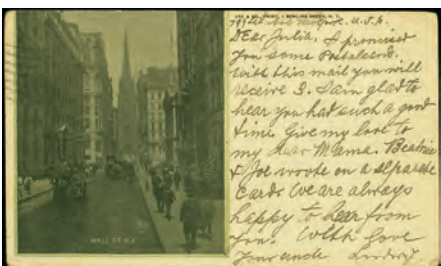 WALL ST. N.Y.
Dear Julia. I promised
you some Postalcards.
With this mail you will
receive 3. I am glad to
hear you had such a good
time. Give my love to
my dear Mama. Beatrice
& Joe wrote on a separate
Cards We are always
happy to hear from
you. With Love
Your uncle